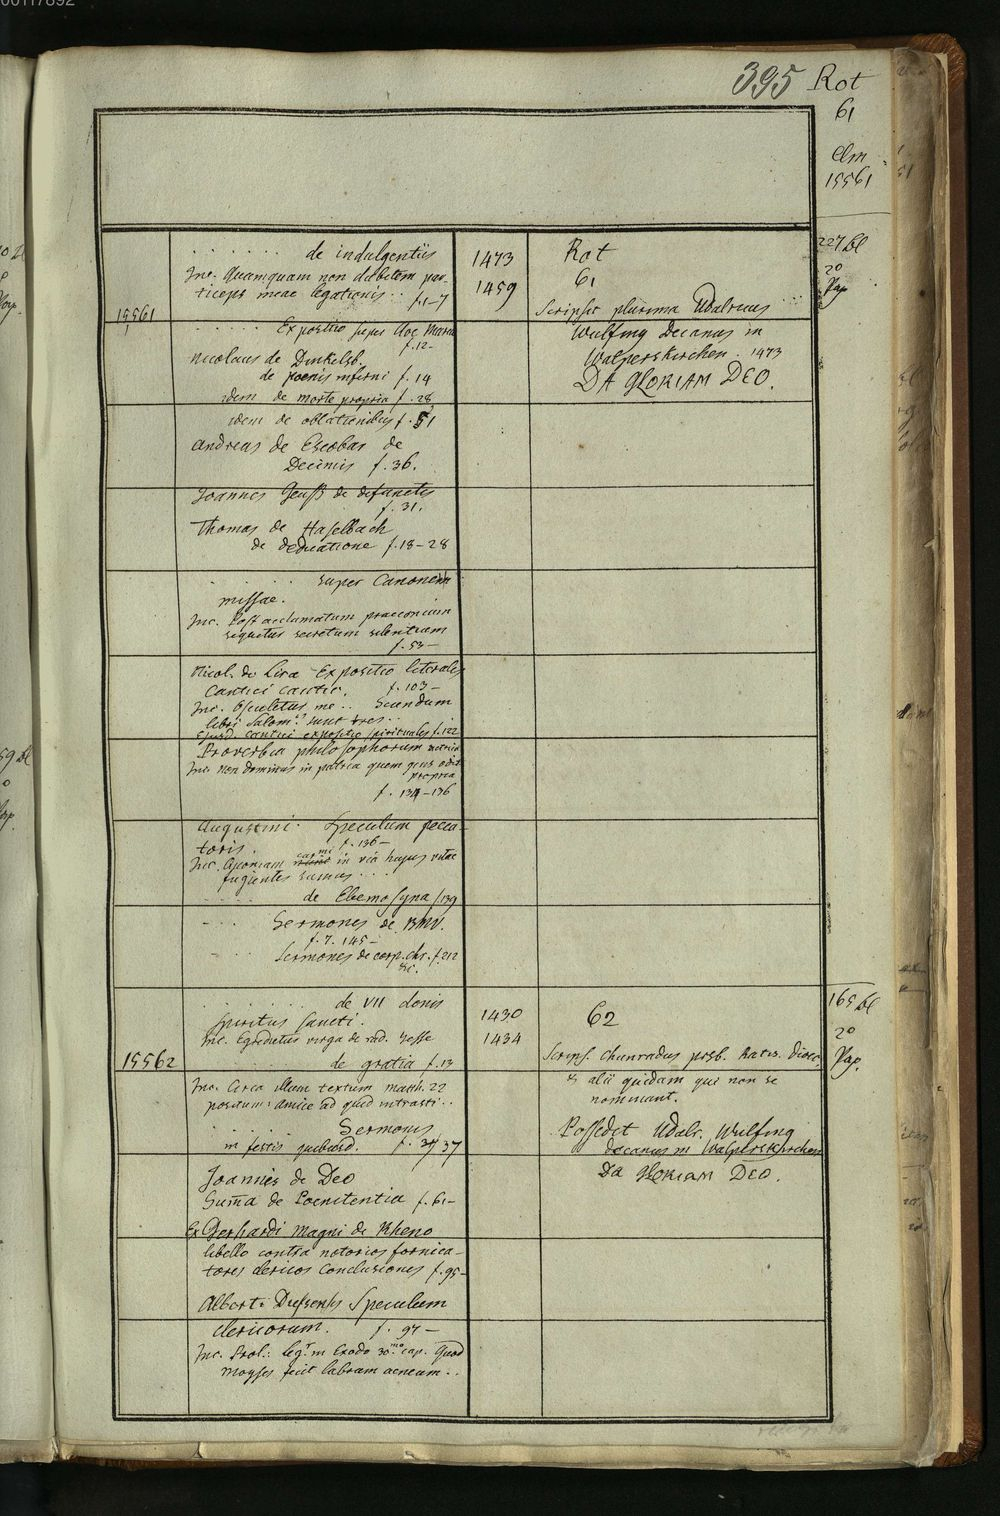 395 Rot
61
Clm
15561
227 Bl
2o
Pap
15561
. . . . . . . de indulgentiis
Inc. Quamquam non dubitem par-
ticeps meae legationis . . f. 1-7
. . . . . Expositio super Ave Maria
f. 12 -
Nicolaus de Dinkelsb.
de poenis inferni f. 14
idem de morte propria f. 28
idem de oblationibus f. 51
Andreas de Escobar de
Decimis f. 36.
Joannes Geuß de defunctis
f. 31.
Thomas de Haselbach
de dedicatione f. 18-28
. . . . . super Canonem
missae.
Inc. Post acclamatum praeconium
sequitur secretum silentium
f. 53 -
Nicol. de Lira Expositio literalis
Cantici cantic. f. 103 -
Inc. Osculetur me . . Sciendum
libri Salom. sunt tres . .
Ejusd. cantici expositio spiritualis f. 122
Proverbia philosophorum
Inc. non dominus in patria quem
propria
f. 134-136
Augustini. Speculum pecca-
toris. f. 136 -
Inc. Quoniam carmi in via hujus vitae
fugientes sumus . . . .
. . . . . de Elemosyna f. 139
. . . Sermones de BMV.
f. 7. 145 -
. . . Sermones de corp. chr. f. 212
1473
1459
Rot
61
Scripsit plurima Udalricus
Wulfing Decanus in
Walperskirchen . 1473
DA GLORIAM DEO.
15562
. . . . . de VII donis
spiritus sancti.
Inc. Egredietur virga de rad. Jesse
. . . . . de gratia f. 13
Inc. Circa illum textum Matth. 22
positum: Amice ad quid intrasti . .
. . . . . Sermones
in festis quibusd. f. 37
Joannis de Deo
Sum̄a de Poenitentia f. 61 -
Ex Gerhardi Magni de Rheno
libello contra notorios fornica-
tores clericos Conclusiones f. 95 -
Alberti Diessensis Speculum
clericorum. f. 97 -
Inc. Prol.: legr in Exodo 30mo cap. Quod
Moyses fecit labrum aeneum . .
1430
1434
62
Scrips. Chunradus presb. Ratis. dioec.
et alii quidam qui non se
nominant.
Possedit Udalr. Wulfing
decanus in Walperskirchen
DA GLORIAM DEO.
165 Bl
2o
Pap.